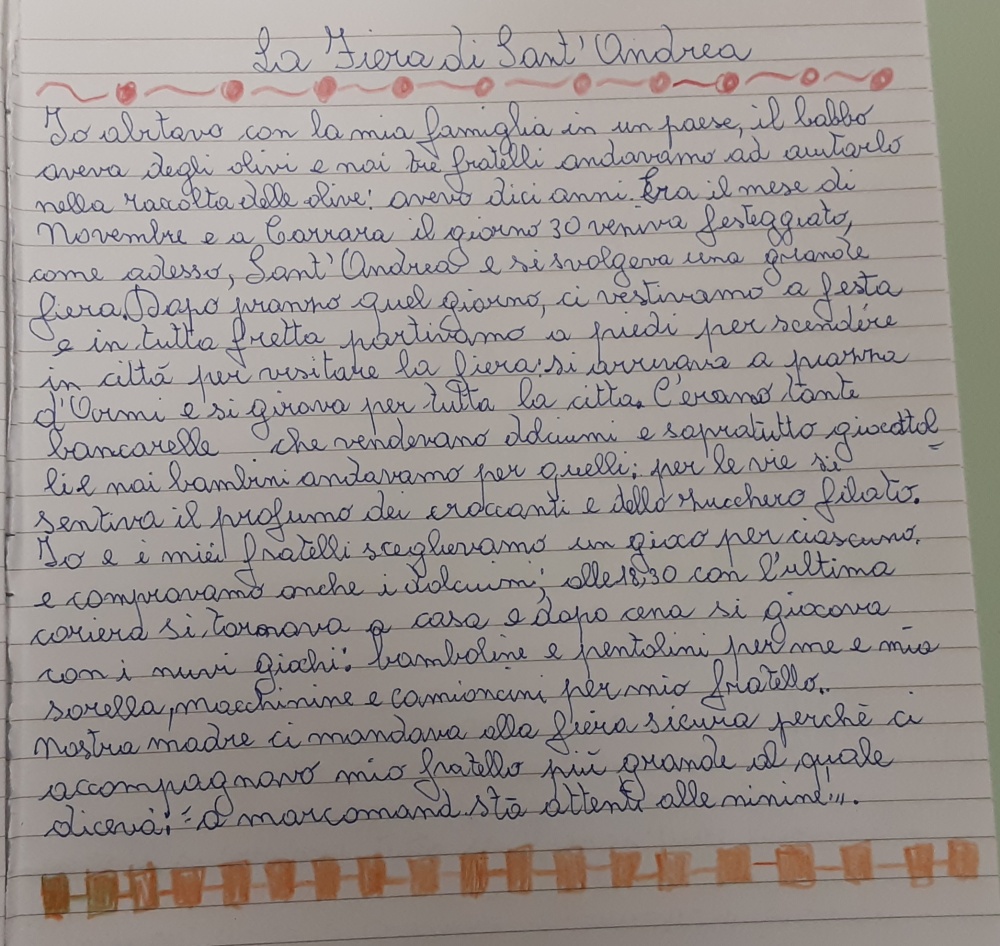 La Fiera di Sant'Andrea
Io abitavo con la mia famiglia in un paese, il babbo
aveva degli olivi e noi tre fratelli andavamo ad aiutarlo
nella raccolta delle olive: avevo dici anni. Era il mese di
Novembre e a Carrara il giorno 30 veniva festeggiato,
come adesso, Sant'Andrea e si svolgeva una grande
fiera. Dopo pranzo quel giorno, ci vestivamo a festa
e in tutta fretta partivamo a piedi per scendere
in città per visitare la fiera: si arrivava a piazza
d'Armi e si girava per tutta la città. C'erano tante
bancarelle che vendevano dolciumi e sopratutto giocattol
li e noi bambini andavamo per quelli; per le vie si
sentiva il profumo dei croccanti e dello zucchero filato.
Io e i miei fratelli sceglievamo un gioco per ciascuno,
e compravamo anche i dolciumi; alle 18,30 con l'ultima
coriera si tornava a casa e dopo cena si giocava
con i nuvi giochi: bamboline e pentolini per me e mia
sorella, macchinine e camioncini per mio fratello.
Nostra madre ci mandava alla fiera sicura perchè ci
accompagnava mio fratello più grande al quale
diceva: "a m'arcomand stà attent alle ninine".